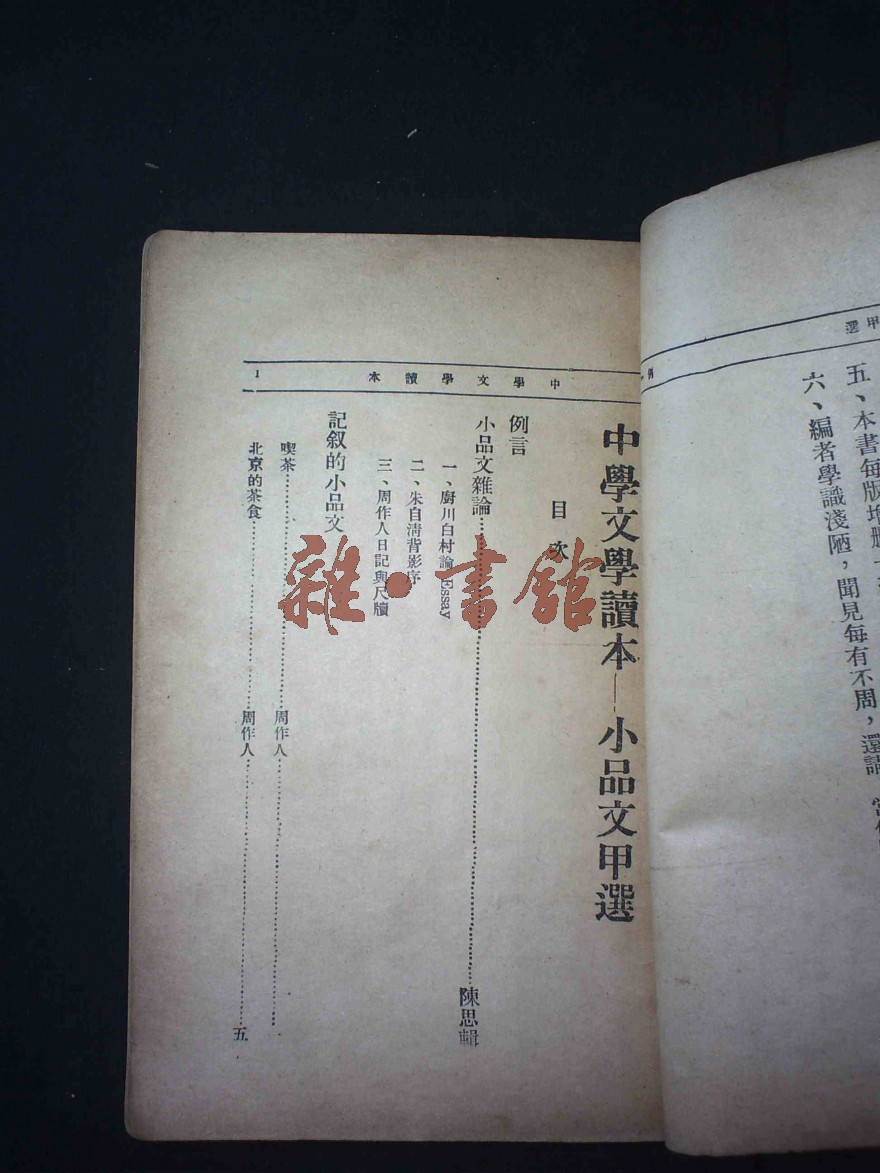 甲選
五、本書每版增删一
六、編者學識淺陋，聞見每有不周，還請
中學文學讀本
1
中學文學讀本——小品文甲選
目次
例言
小品文雜論……陳思輯
一、廚川白村論Essay
二、朱自清背影序
三、周作人日記與尺牘
記叙的小品文
喫茶……周作人……
北京的茶食……周作人……五
雜·書館